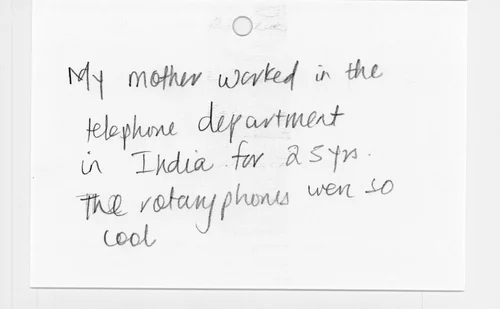 My mother worked in the
telephone department
in India for 25 yrs.
The rotary phones were so
cool